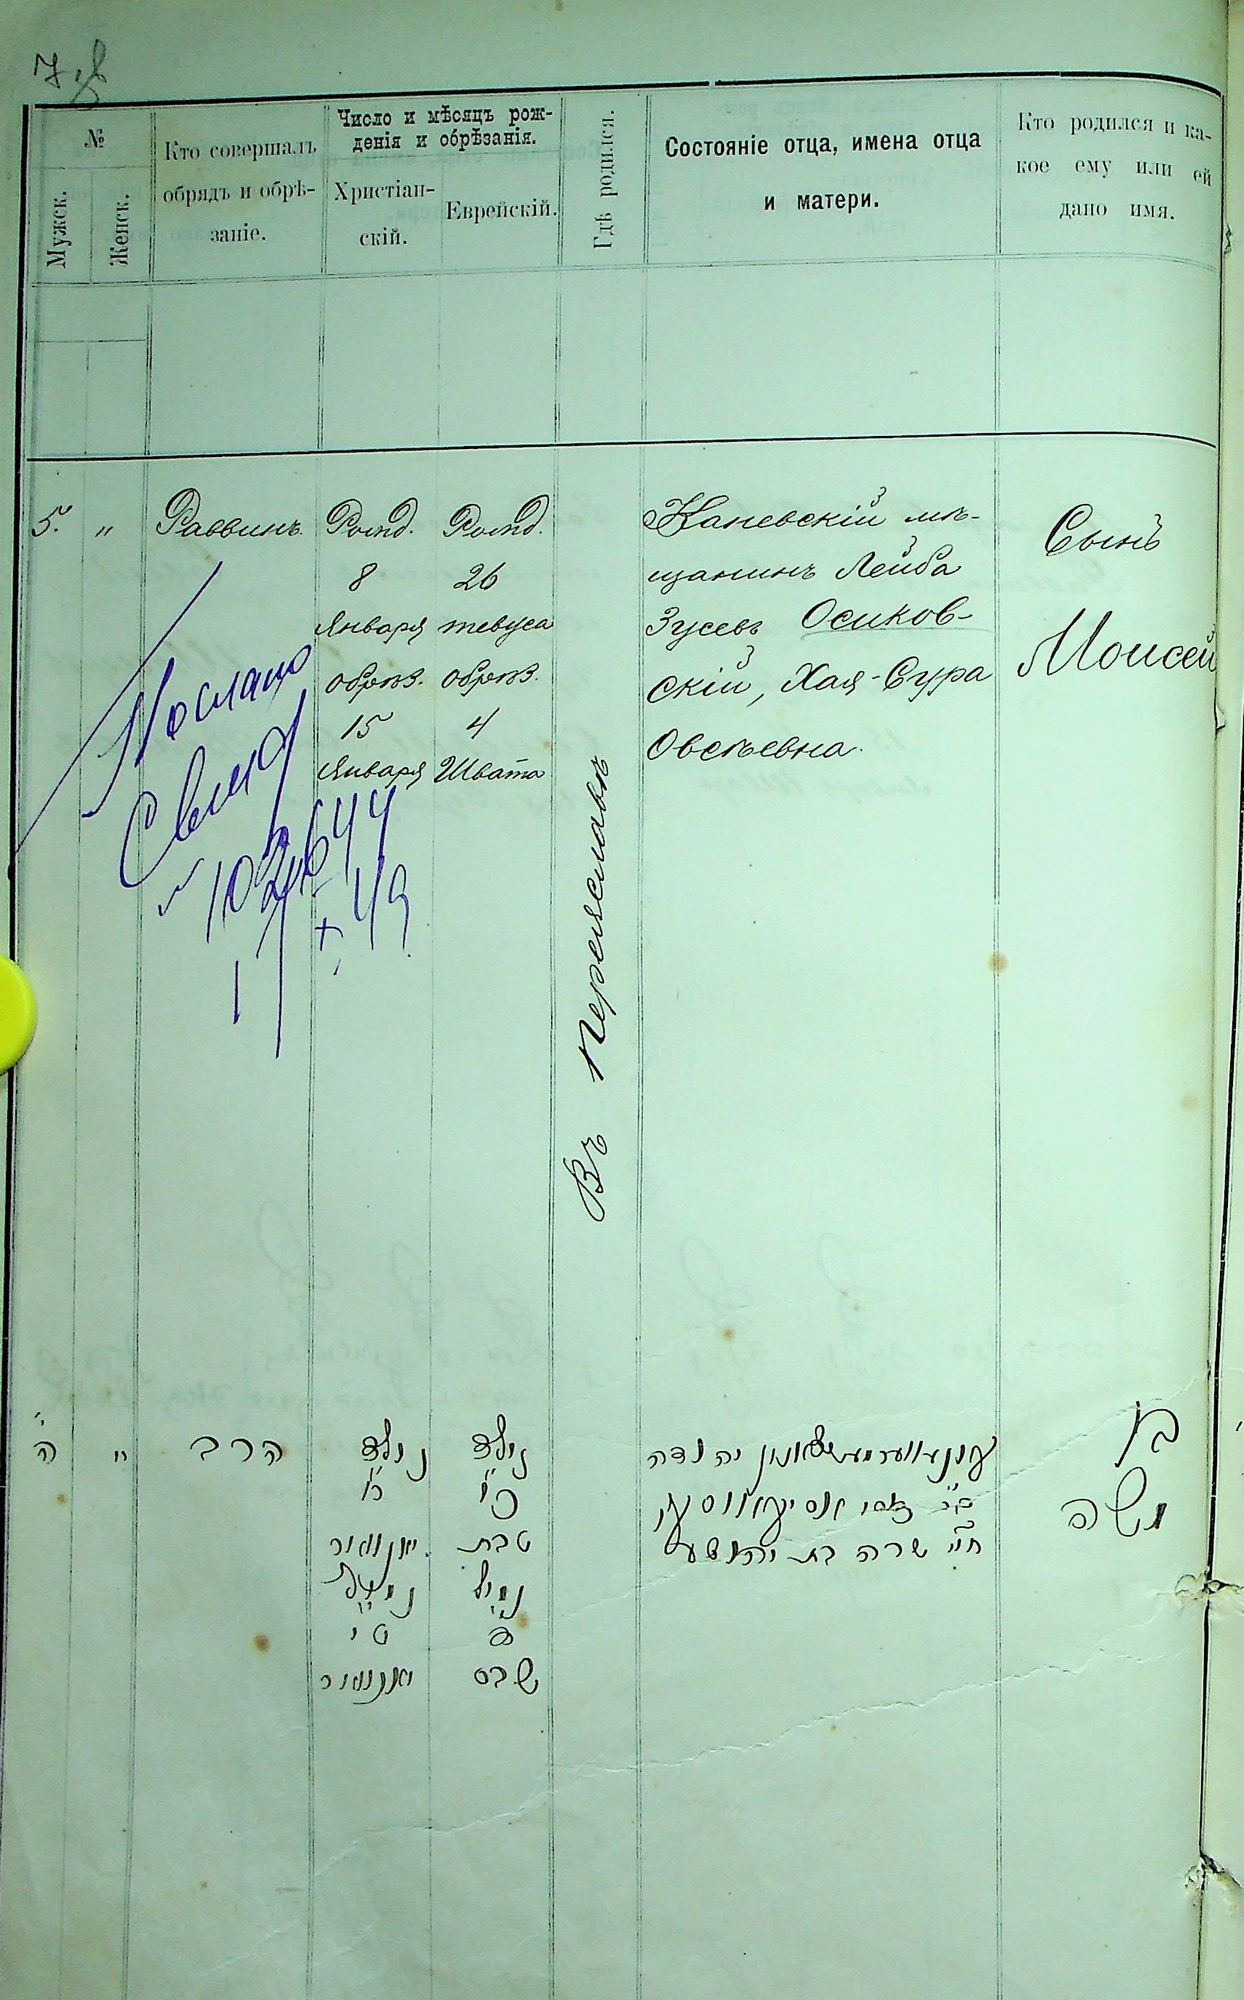 7
№
Мужск.
Женск.
Кто совершалъ
обрядъ и обрѣ-
заніе.
Число и мѣсяцъ рож-
денія и обрѣзанія.
Христіан-
скій.
Еврейскій.
Гдѣ родился.
Состояніе отца, имена отца
и матери.
Кто родился и ка-
кое ему или ей
дано имя.
5. „
Раввинъ.
Рожд.
8
Января
обрѣз.
15
Января
Рожд.
26
тевуса
обрѣз.
4
Швата
Въ Переяславѣ
Каневскій мѣ-
щанинъ Лейба
Зусевъ Осиков-
скій, Хая-Сура
Овсѣевна.
Сынъ
Моисей
Послано
ה „
הרב
נולד
יאנוואר
נימול
ט״ו
יאנוואר
נולד
כ״ו
טבת
נימול
ד
שבט
יהודה
חי׳ שרה בת יהושע
בן
משה